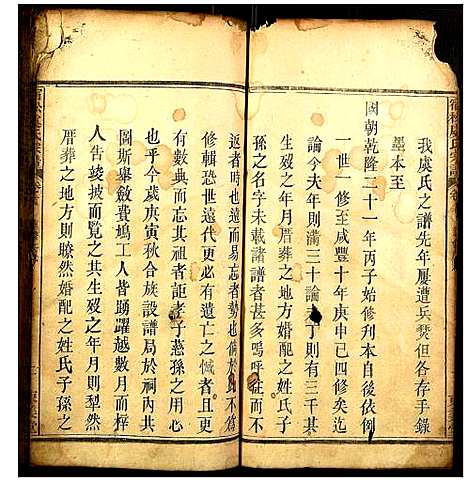 我虞氏之譜先年屢遭兵燹但各存手錄
墨本至
國朝乾隆二十一年丙子始修刋本自後依例
一世一修至咸豐十年庚申已四修矣迄
論今夫年則滿三十論丁則有三千其
孫之名字未載諸譜者甚多嗚呼往而不
返者時也遠而易忘者勢也倘於此不
修輯恐世遠代更必有遺亡之憾者且更
有忘遠而忘其祖者詎孝子慈孫之用心
也乎今歲庚寅秋合族設譜局於祠內共
圖斯舉斂費鳩工人皆踴躍越數月而梓
人告竣披而覽之其生歿之年月則犁然
厝葬之地方則瞭然婚配之姓氏子孫之